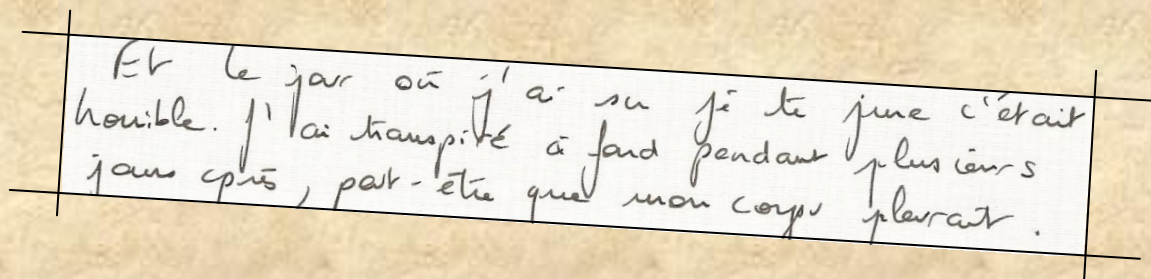 Et le jour où j'ai su je te jure c'était
horrible. J'ai transpiré à fond pendant plusieurs
jours après, peut-être que mon corps pleurait.